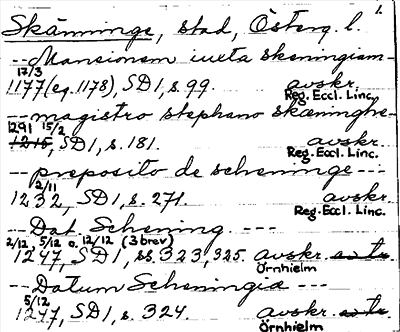 1.
Skänninge, stad, Österg. l.
-- Mansionem iuxta skeningiam -
17/3
1177 (eg. 1178), SD 1, s. 99. avskr.
Reg. Eccl. Linc.
-- magistro stephano skæninghe -
1291 15/2
1215, SD 1, s. 181. avskr.
Reg. Eccl. Linc.
-- preposito de scheninge ---
2/11
1232, SD 1, s. 271. avskr.
Reg. Eccl. Linc.
-- Dat. Schening. ---
2/12, 5/12 o. 12/12 (3 brev)
1247, SD 1, ss 323, 325. avskr.
Örnhielm
-- Datum Scheningia ---
5/12
1247, SD 1, s. 324. avskr.
Örnhielm